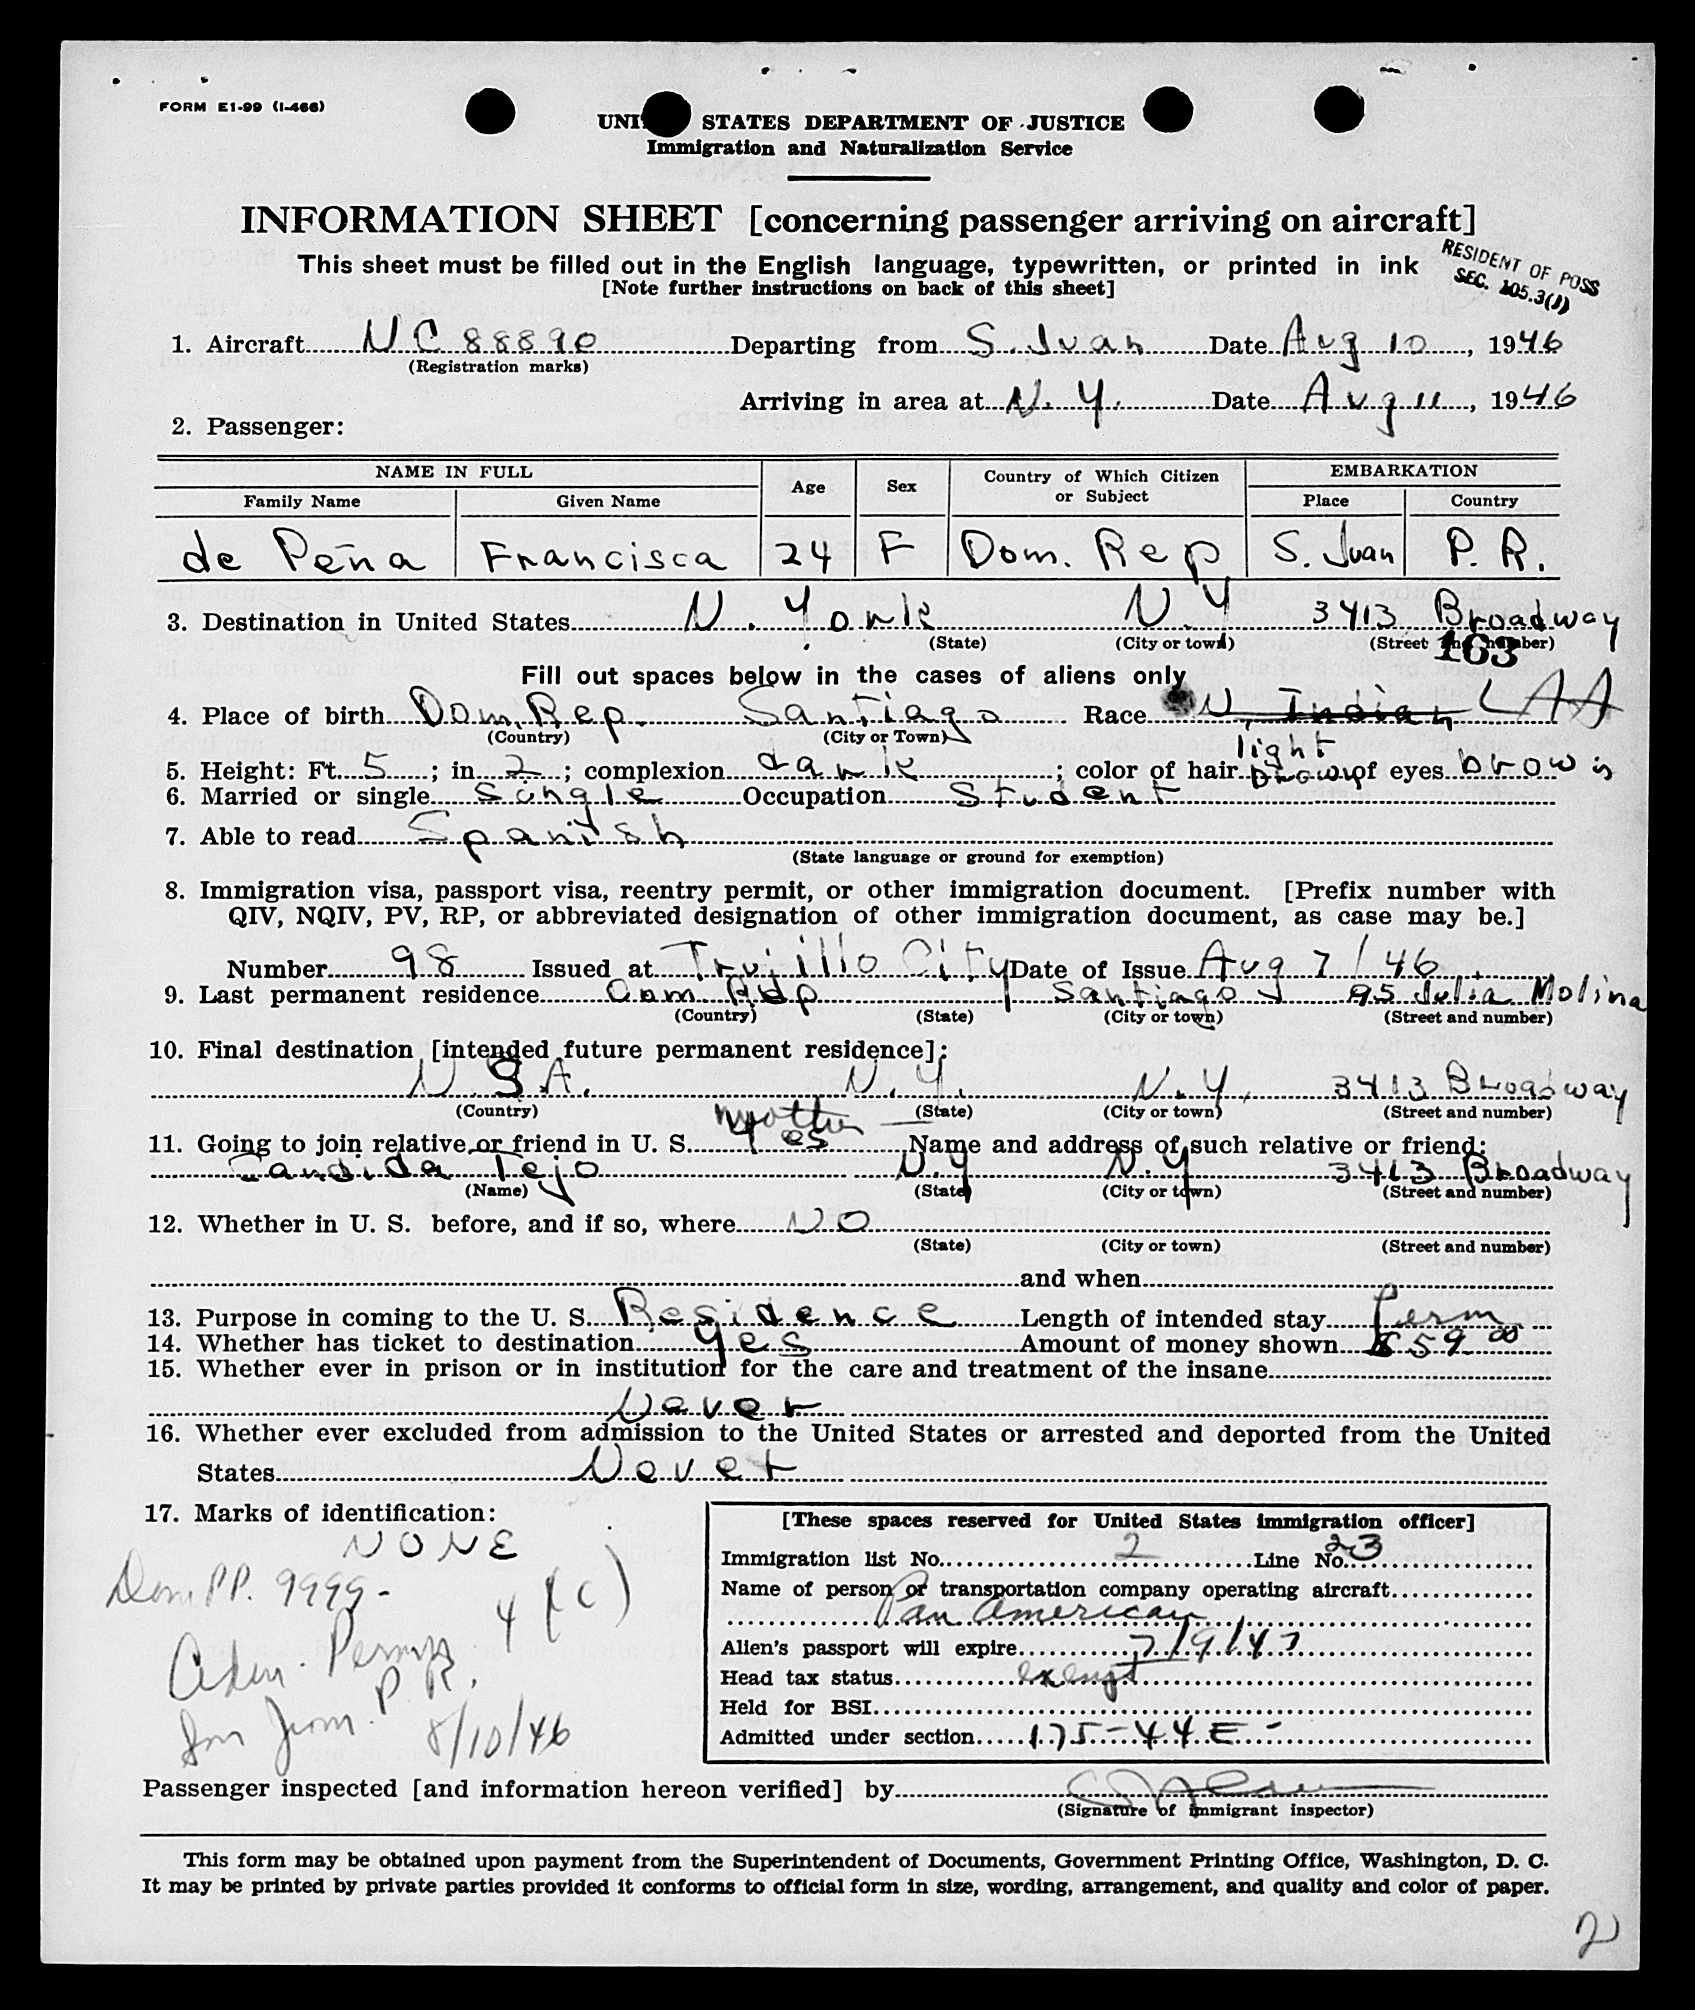 FORM E1-99 (I-466)
UNI STATES DEPARTMENT OF JUSTICE
Immigration and Naturalization Service
INFORMATION SHEET [concerning passenger arriving on aircraft]
This sheet must be filled out in the English language, typewritten, or printed in ink
RESIDENT OF POSS
SEC. 105.3(J)
[Note further instructions on back of this sheet]
1. Aircraft NC 88890 Departing from S. Juan Date Aug 10, 1946
(Registration marks)
Arriving in area at N.Y. Date Aug 11, 1946
2. Passenger:
NAME IN FULL Age Sex Country of Which Citizen or Subject EMBARKATION
Family Name Given Name Place Country
de Peña Francisca 24 F Dom. Rep S. Juan P.R.
3. Destination in United States N. York N.Y 3413 Broadway
(State) (City or town) (Street and number)
163
Fill out spaces below in the cases of aliens only
4. Place of birth Dom. Rep. Santiago Race N. Indian LAA
(Country) (City or Town)
light
5. Height: Ft. 5; in. 2; complexion dark; color of hair brown of eyes brown
6. Married or single Single Occupation Student
7. Able to read Spanish
(State language or ground for exemption)
8. Immigration visa, passport visa, reentry permit, or other immigration document. [Prefix number with
QIV, NQIV, PV, RP, or abbreviated designation of other immigration document, as case may be.]
Number 98 Issued at Trujillo City Date of Issue Aug 7/46
9. Last permanent residence Dom Rep Santiago 95 Julia Molina
(Country) (State) (City or town) (Street and number)
10. Final destination [intended future permanent residence]:
U S A. N.Y. N.Y. 3413 Broadway
(Country) (State) (City or town) (Street and number)
mother
11. Going to join relative or friend in U. S. Yes Name and address of such relative or friend:
Candida Tejo N.Y N.Y 3413 Broadway
(Name) (State) (City or town) (Street and number)
12. Whether in U. S. before, and if so, where NO
(State) (City or town) (Street and number)
and when
13. Purpose in coming to the U. S. Residence Length of intended stay Perm
14. Whether has ticket to destination Yes Amount of money shown $59.00
15. Whether ever in prison or in institution for the care and treatment of the insane
Never
16. Whether ever excluded from admission to the United States or arrested and deported from the United
States Never
17. Marks of identification:
NONE
Dom. PP. 9999-
4 (C)
Adm. Perm
P.R.
San Juan.
8/10/46
[These spaces reserved for United States immigration officer]
Immigration list No. 2 Line No. 23
Name of person or transportation company operating aircraft
Pan American
Alien's passport will expire 7/9/47
Head tax status exempt
Held for BSI
Admitted under section 175-44E-
Passenger inspected [and information hereon verified] by
(Signature of immigrant inspector)
This form may be obtained upon payment from the Superintendent of Documents, Government Printing Office, Washington, D. C.
It may be printed by private parties provided it conforms to official form in size, wording, arrangement, and quality and color of paper.
2